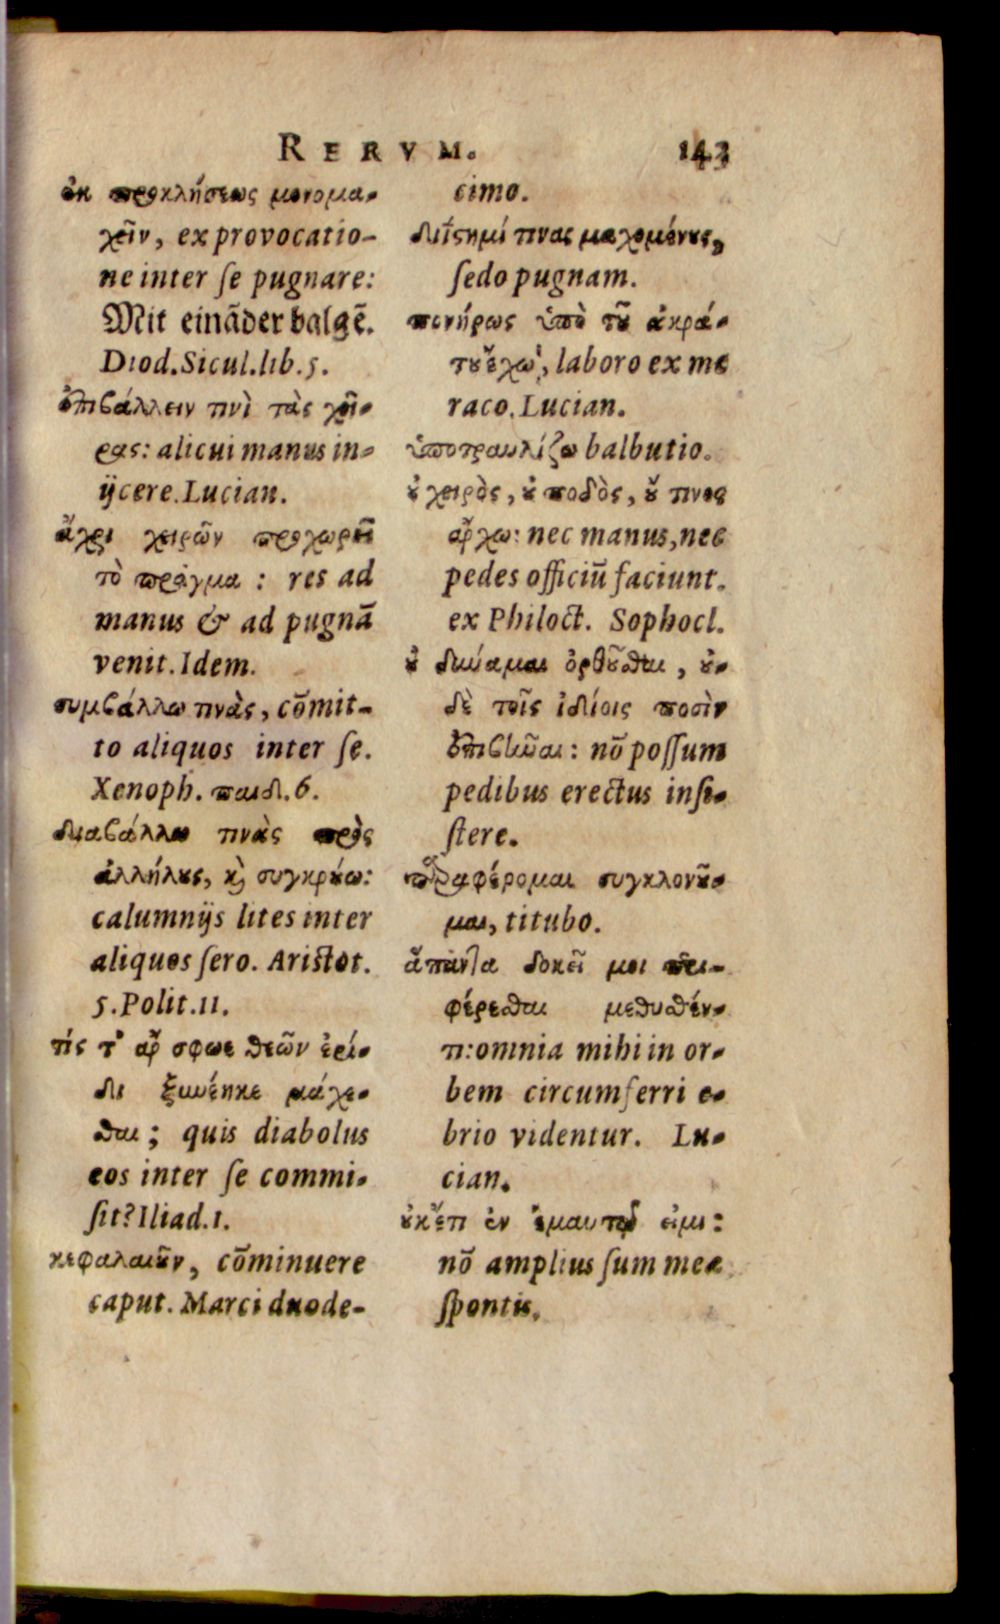 RERVM. 143
ἐκ προκλήσεως μονομα-
χεῖν, ex provocatio-
ne inter ſe pugnare:
Mit einãder balgẽ.
Diod. Sicul. lib. 5.
ἐπιβάλλειν τινὶ τὰς χεῖ-
ρας: alicui manus in-
ijcere. Lucian.
ἄχρι χειρῶν προχωρεῖ
τὸ πράγμα : res ad
manus & ad pugnã
venit. Idem.
συμβάλλω τινὰς, cõmit-
to aliquos inter ſe.
Xenoph. παιδ. 6.
διαβάλλω τινὰς πρὸς
ἀλλήλους, καὶ συγκρούω:
calumnijs lites inter
aliquos ſero. Ariſtot.
5. Polit. 11.
τίς τ' ἄρ σφωε θεῶν ἔρι-
δι ξυνέηκε μάχε-
σθαι; quis diabolus
eos inter ſe commi-
ſit? Iliad. 1.
κεφαλαιοῦν, cõminuere
caput. Marci duode-
cimo.
διΐστημί τινας μαχομένους,
ſedo pugnam.
πονήρως ὑπὸ τοῦ ἀκρά-
του ἔχω, laboro ex me
raco. Lucian.
ὑποτραυλίζω balbutio.
οὐ χειρὸς, οὐ ποδὸς, οὔ τινος
ἄρχω: nec manus, nec
pedes officiũ faciunt.
ex Philoct. Sophocl.
οὐ δύναμαι ὀρθοῦσθαι, οὐ-
δὲ τοῖς ἰδίοις ποσὶν
ἐπιβῆναι: nõ poſſum
pedibus erectus inſi-
ſtere.
παραφέρομαι συγκλονοῦ-
μαι, titubo.
ἅπαντα δοκεῖ μοι περι-
φέρεσθαι μεθυσθέν-
τι: omnia mihi in or-
bem circumferri e-
brio videntur. Lu-
cian.
οὐκ ἔτι ἐν ἐμαυτῷ εἰμι:
nõ amplius ſum meæ
ſpontis.